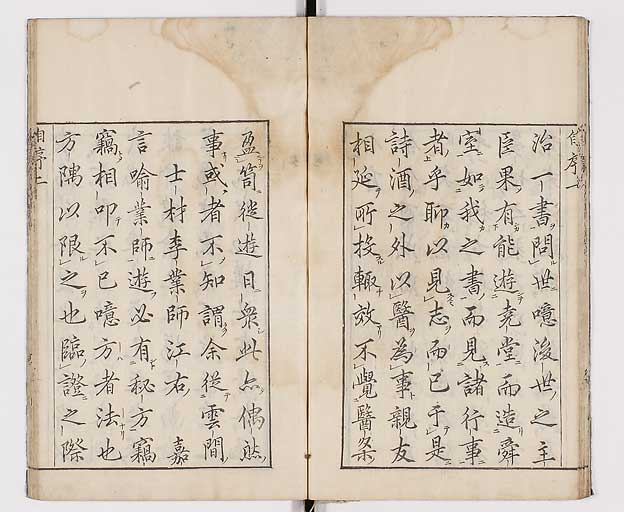 自序一
治一書問世噫後世之主
臣果有能遊堯堂而造舜
室如我之書而見諸行事
者乎聊以見志而已于是
詩酒之外以醫為事親友
相延所投輙放不覺醫案
盈笥従遊日衆此亦偶然
事或者不知謂余従雲間
士材李業師江右嘉
言喻業師遊必有秘方竊
竊相叩不已噫方者法也
方隅以限之也臨證之際
自序二